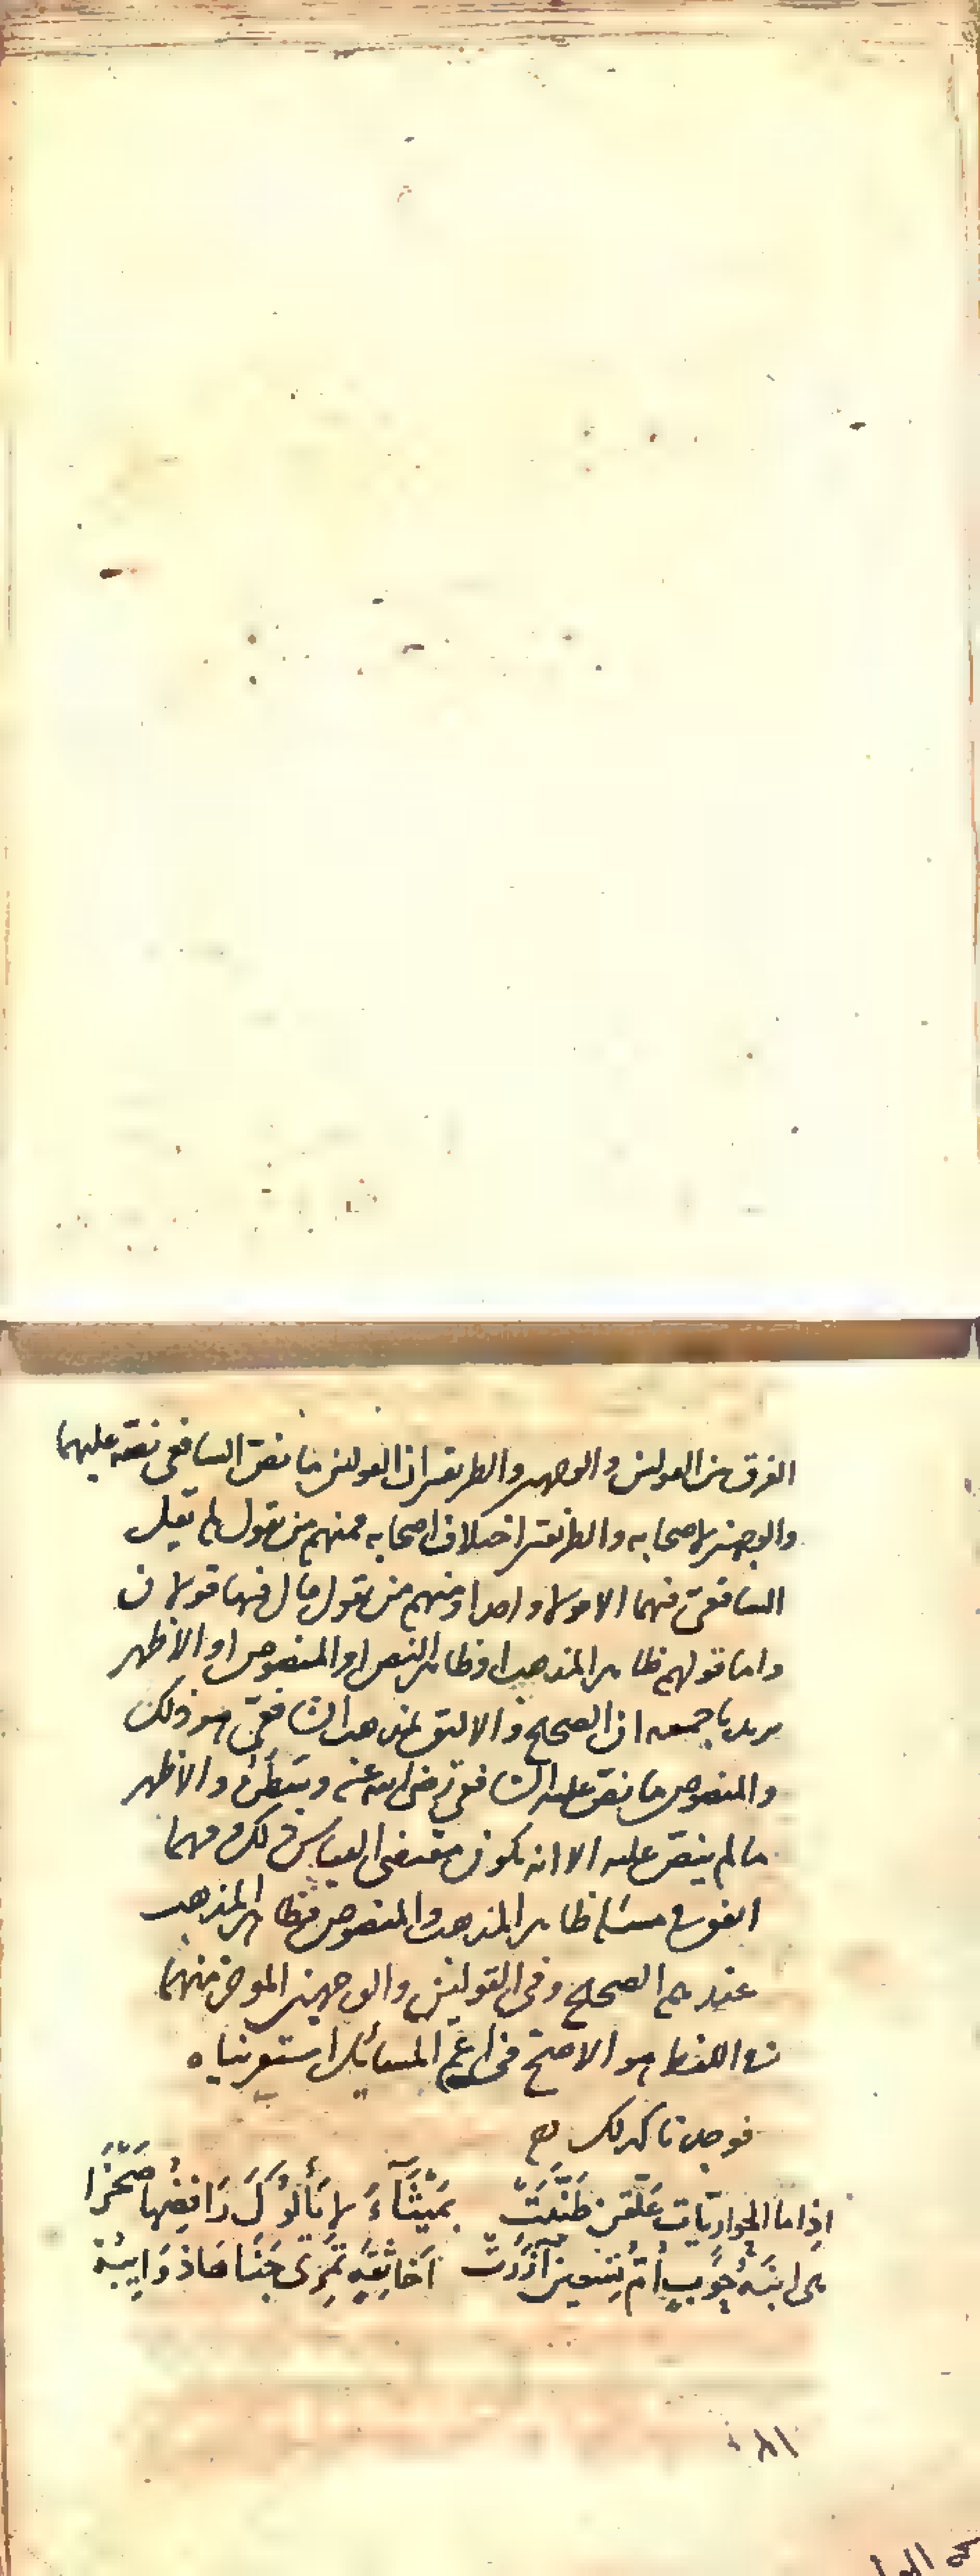 الفرق بين القولين والوجهين والطريقين ان القولين ما نص الشافعي نصه عليهما
والوجهين لاصحابه والطريقين اختلاف اصحابه فمنهم من يقول لم يقل
الشافعي فيهما الا قولا واحدا ومنهم من يقول قال فيها قولان
واما قولهم ظاهر المذهب او ظاهر النص او المنصوص او الاظهر
يريد باجمعه ان الصحيح والاليق لمذهب الشافعي هو ذلك
والمنصوص ما نص عليه الشافعي رضى الله عنه والاظهر
ما لم ينص عليه الا انه يكون مقتضى القياس ذلك ومهما
اتفق في مسئلة ظاهر المذهب والمنصوص فظاهر المذهب
عندهم الصحيح وفى القولين والوجهين منهما
في اللفظ هو الاصح فى اعم المسائل استقريناه
فوجدنا كذلك
اذا ما الحواريات علقن طنبت بميثاء لا يألوك رافضها صخرا
ابنة جوب ام تسعين آزرت اخا ثقة تمرى جبا ها ذوائبه